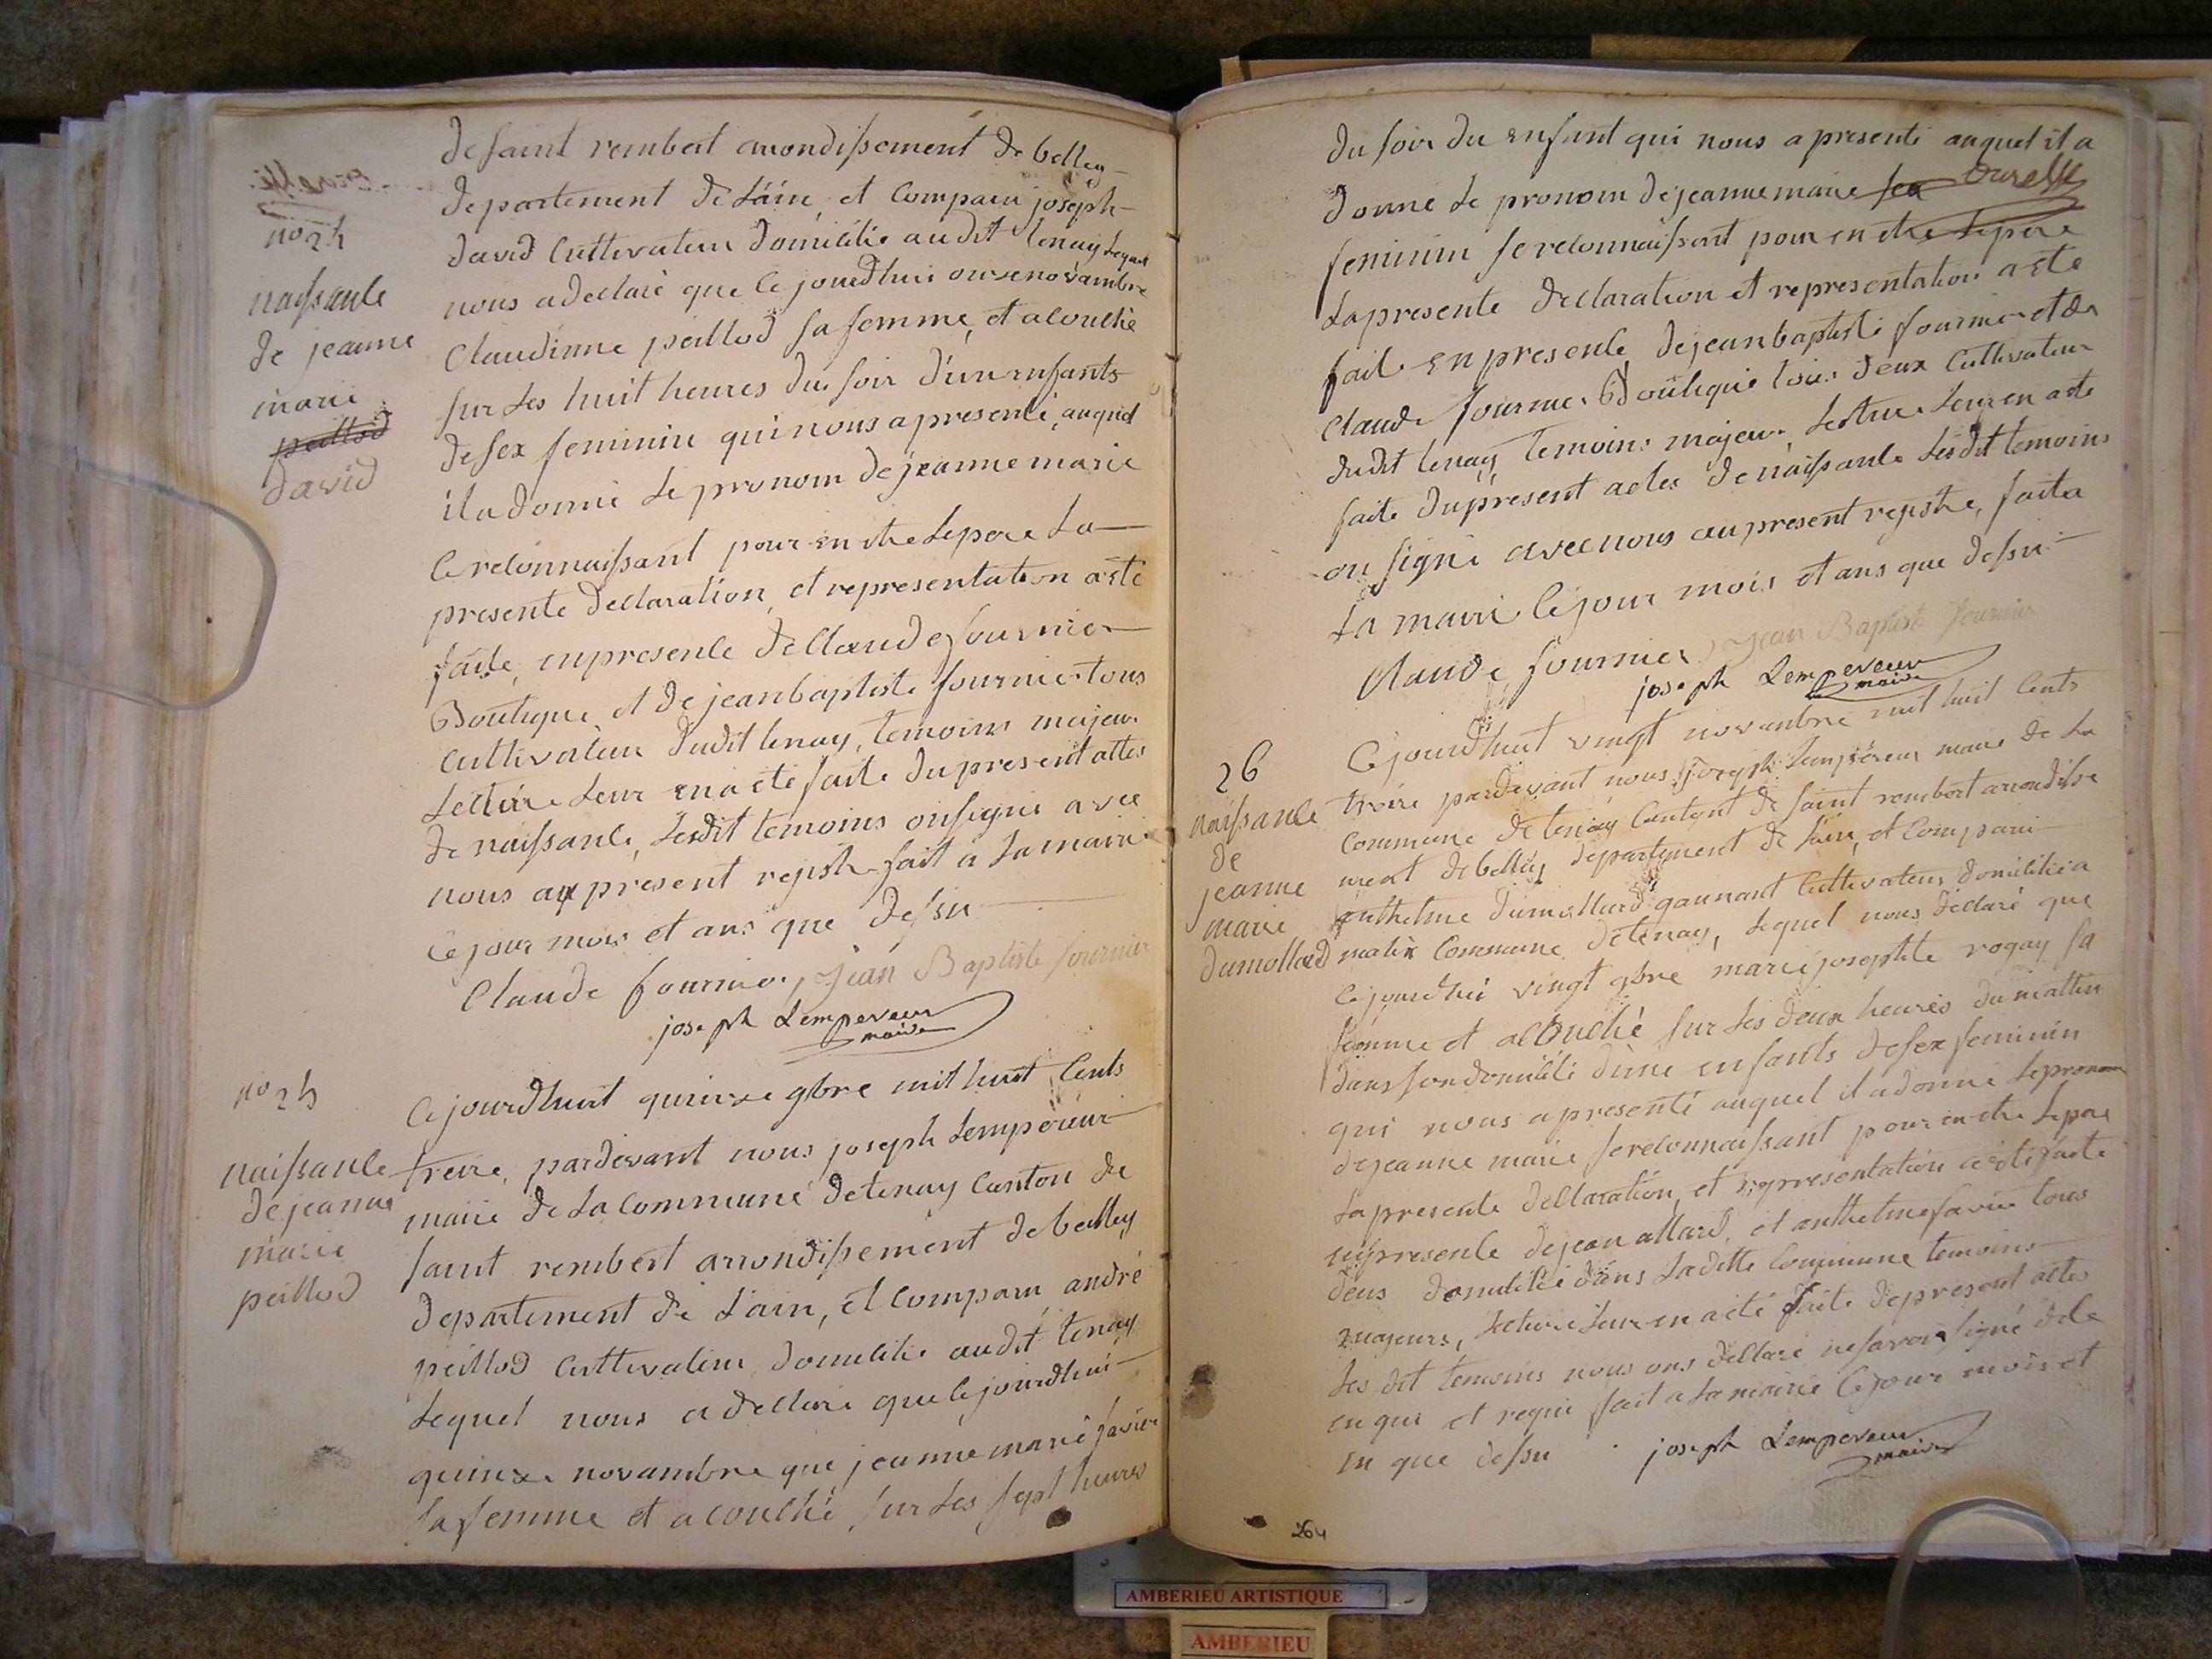 de saint rembert arrondissement de belley
departement de L'ain, et Comparu joseph
david Cultivateur domicilié au dit tenay Lequel
nous a declaré que Ce jourdhui onze novambre
Claudinne peillod sa femme, et acouchée
sur Les huit heures du soir d'un enfants
de sex feminin qui nous a presenté, auquel
il a donné Le pronom de jeanne marie
Ce reconnaissant pour en etre Le pere La
presente declaration, et representation a ete
faite, en presence de Claude fournier
Boutique, et de jean baptiste fournier tous
Cultivateur dudit tenay, temoins majeur
Lecture Leur en a eté faite du present actes
de naissance, Lesdit temoins on signé avec
nous au present rejistre fait a La mairie
Ce jour mois et ans que dessu
Claude fournier, Jean Baptiste fournier
joseph Lempereur
maire
no 24
naissance
de jeanne
marie
peillod
david
no 25
naissance
de jeanne
marie
peillod
Ce jourdhuit quinze 9bre mil huit Cents
treize, pardevant nous joseph Lempereur
maire de La Commune de tenay Canton de
saint rembert arrondissement de belley
departement de L'ain, et Comparu andré
peillod Cultivateur domicilié audit tenay
Lequel nous a declaré que Ce jourdhui
quinze novambre que jeanne marie savier
sa femme et acouché, sur Les sept heures
du soir du enfant qui nous a presenté auquel il a
donné Le pronom de jeanne marie sex
feminin se reconnaissant pour en etre Le pere
La presente declaration et representation a ete
fait en presence de jean baptiste fournier et de
Claude fournier Boutique tous deux Cultivateur
dudit tenay, temoins majeur, Lecture Leur en a ete
faite du present actes de naissance Lesdit temoins
on signé avec nous au present rejistre, fait a
La mairi Ce jour mois et ans que dessu
Claude fournier, Jean Baptiste fournier
joseph Lempereur
maire
26
naissance
de
jeanne
marie
dumollard
Ce jourdhuit vingt novambre mil huit Cents
treize pardevant nous joseph Lempereur maire de La
Commune de tenay Canton de saint rembert arrondisse
ment de belley departement de L'ain, et Comparu
anthelme dumollard gannant Cultivateur domicilié a
malix Commune de tenay, Lequel nous declaré que
Ce jourdhui vingt 9bre marie josephte rogay sa
femme et acouché sur Les deux heures du mattin
dans son domicile d'une enfants de sex feminin
qui nous a presenté auquel il a donné Le pronom
de jeanne marie se reconnaissant pour en etre Le pere
La presente declaration, et representation a eté faite
en presence de jean allard, et anthelme savier tous
deus domicilié dans La dette Commune temoins
majeurs, Lecture Leur en a eté faite de present actes
Les dit temoins nous ons declaré ne savoir signé de ce
enqui et requi fait a La mairie Ce jour mois et
en que dessu
joseph Lempereur
maire
264
AMBERIEU ARTISTIQUE
AMBERIEU